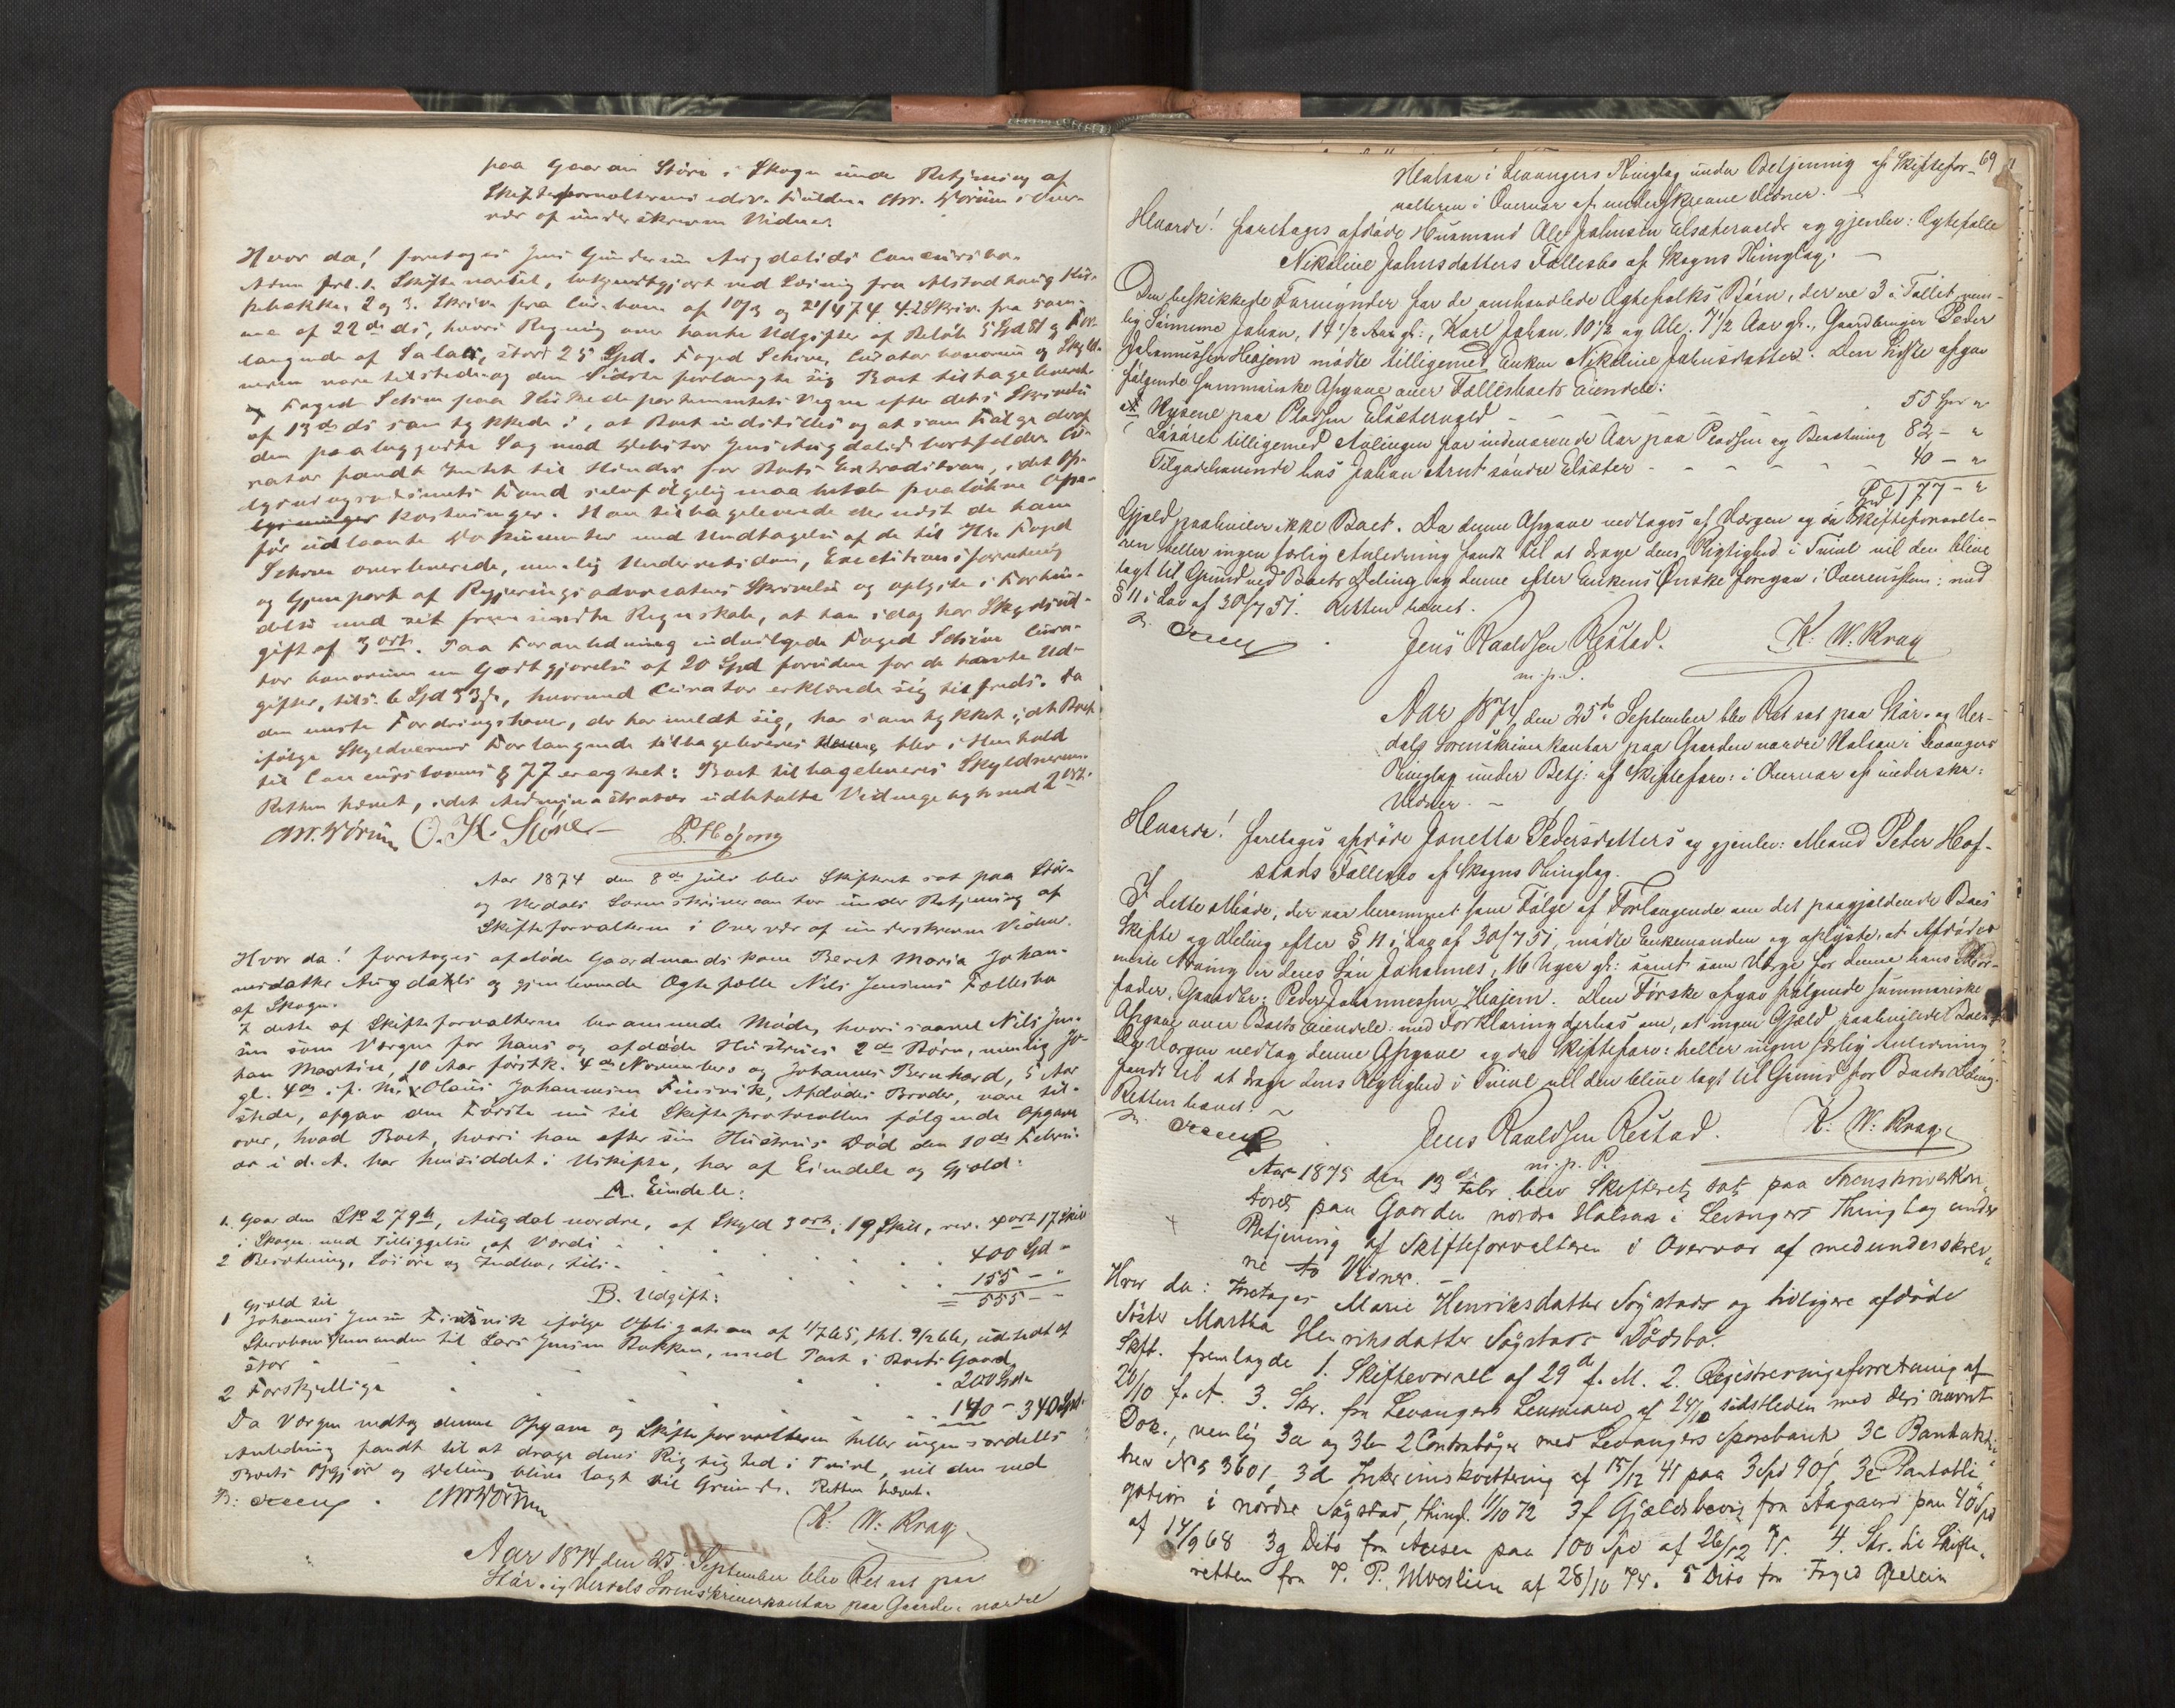 paa Gaarden Störe i Skogn under Betjening af
Skifteforvalterens edsv. Fuldm. Chr. Wörüm i Over-
vær af underskrevne Vidner.
Hvor da! foretoges Jens Gundersen Augdalids Concursbo.
Adm. frl. 1. Skiftevarsel, bekjendtgjort ved Læsning fra Alstadhaug Kir-
kebakke. 2 og 3. Skriv. fra Cur. bon. af 10/3 og 21/4 74 4. 2 Skriv. fra sam-
me af 22de ds, hvori Regning over havte Udgifter af Beløb 5 Spd og For-
langende af Salair, stort 25 Spd. Foged Schive, Curator bonorum og Skyld-
neren vare tilstede og den Sidste forlangte sig Boet tilbageleveret.
Foged Schive paa Kirkedepartementets Vegne efter dets Skrivelse
af 13de ds samtykkede i, at Boet indstilles og at som Følge deraf
den paabegyndte Sag mod Debitor Jens Augdalid bortfalder. Cu-
rator fandt Intet til Hinder for Boets Extradition, idet Op-
lysningsvæsenets Fond selvfølgelig maa betale paaløbne Ope-
kostninger. Han tilbageleverede dernæst de ham
før udlaante Dokumenter med Undtagelse af de til Hr. Foged
Schive overleverede, nemlig Underretsdom, Executionsforretning
og Gjenpart af Regjeringsadvokatens Skrivelse og oplyste i Forbin-
delse med sit fremsendte Regnskab, at han idag har Skydsud-
gift af 3 ort. Paa Foranledning indvilgede Foged Schive Cura-
tor bonorum en Godtgjörelse af 20 Spd foruden for de havte Ud-
gifter, tils. 6 Spd 53 s, hvormed Curator erklærede sig tilfreds. Da
den eneste Fordringshaver, der har meldt sig, har samtykket i, at Boet
ifølge Skyldnerens Forlangende tilbageleveres blev i Henhold
til Concurslovens § 77 eragtet: Boet tilbageleveres Skyldneren.
Retten hævet, idet Administrator udbetalte Vidnegebyhr med 2 ort.
Chr. Wörüm O. K. Störe P. Hojem
Aar 1874 den 8de Juli blev Skifteret sat paa Stör-
og Værdals Sorenskrivercontor under Betjening af
Skifteforvalteren i Overvær af underskrevne Vidner.
Hvor da! foretoges afdøde Gaardmandskone Beret Maria Johan-
nesdatter Augdahls og gjenlevende Ægtefælle Nils Jensens Fællesbo
af Skogn.
I dette af Skifteforvalteren berammede Møde, hvori saavel Nils Jen-
sen som Værgen for hans og afdøde Hustrues 2de Börn, nemlig Jo-
han Martin, 10 Aar förstk. 4de November og Johannes Bernhard, 5 Aar
gl. 4de f. M., Olaus Johannesen Finsvik, Afdödes Broder, vare til-
stede, opgav den Förste nu til Skifteprotocollen følgende Opgave
over, hvad Boet, hvori han efter sin Hustrues Död den 10de Febru-
ar i d. A. har hensiddet i Uskifte, har af Eiendele og Gjæld:
A. Eiendele:
1. Gaarden Lno 279b, Augdal nordre, af Skyld 3 ort. 19 Skill, rev. 4 ort 17 Skill
i Skogn med Tilliggelse, af Værdi 400 Spd "
2 Besætning, Lösöre og Indbo, tils. 155 - "
= 555 - -
B. Udgift:
Gjæld til
1 Johannes Jensen Finsvik ifølge Obligation af 1/7 65, thl. 9/2 66, udstedt af
Stervboenkemanden til Lars Jensen Bakken, med Pant i Boets Gaard
stor 200 Spd
2 Forskjellige 140 - 340 Spd
Da Værgen vedtog denne Opgave og Skifteforvalteren heller ingen særdeles
Anledning fandt til at drage dens Rigtighed i Tvivl, vil den ved
Boets Opgjör og Deling blive lagt til Grund. Retten hævet.
Chr Wörüm
K. W. Krag
Aar 1874 den 25de September blev Ret sat paa
Stör- og Værdals Sorenskriverkontor paa Gaarden nordre
69
Halsan i Levangers Thinglag under Betjening af Skiftefor-
valteren i Overvær af underskrevne Vidner.
Hvorda! foretoges afdöde Husmand Ole Johnsen Elsætervolds og gjenlev: Ægtefælle
Nikoline Johnsdatters Fællesbo af Skogns Thinglag.
Den beskikkede Formynder for de omhandlede Ægtefolks Börn, der ere 3 i Tallet, nem-
lig Sönnerne Johan, 14 1/2 Aar gl:, Karl Johan 10 1/2 og Ole 7 1/2 Aar gl., Gaardbruger Peder
Johannessen Heajem mödte tilligemed Enken Nikoline Johnsdatter. Den Sidste afgav
fölgende summariske Opgave over Fællesboets Eiendele:
Husene paa Pladsen Elsætervold 55 Spd "
Lösöret tilligemed Avlingen for indeværende Aar paa Pladsen og Besætning 82 - "
Tilgodehavende hos Johan Arnt söndre Elsæter 40 - "
Spd 177 - "
Gjæld paahviler ikke Boet. Da denne Opgave vedtages af Værgen og da Skifteforvalte-
ren heller ingen særlig Anledning fandt til at drage dens Rigtighed i Tvivl vil den blive
lagt til Grund ved Boets Deling og denne efter Enkens Ønske foregaa i Overensstem: med
§ 11 i Lov af 30/7 51. Retten hævet.
Jens Raaldsen Restad. K. W. Krag
m. p. P.
Aar 1874, den 25de September blev Ret sat paa Stör- og Vær-
dals Sorenskriverkontor paa Gaarden nordre Halsan i Levangers
Thinglag under Betj: af Skifteforv: i Overvær af underskr:
Vidner. -
Hvorda! foretoges afdöde Jonetta Pedersdatters og gjenlev: Mand Peter Hof-
stads Fællesbo af Skogns Thinglag.
I dette Möde, der var berammet som Fölge af Forlangende om det paagjældende Boes
Skifte og Deling efter § 11 i Lov af 30/7 51, mödte Enkemanden og oplyste, at Afdödes
eneste Arving er deres Sön Johannes, 16 Uger gl: samt som Værge for denne hans Mor-
fader, Gaardbr: Peder Johannessen Heajem. Den Förste opgav fölgende summariske
Opgave over Boets Eiendele: med Forklaring derhos om, at ingen Gjæld paahvilede Boet.
Da Værgen vedtog denne Opgave og da Skifteforv: heller ingen særlig Anledning
fandt til at drage dens Rigtighed i Tvivl vil den blive lagt til Grund for Boets Deling.
Retten hævet. ~
Jens Raaldsen Restad. K. W. Krag.
m. p. P.
Aar 1875 den 13de Febr. blev Skifteret sat paa Sorenskriverkon-
toret paa Gaarden nordre Halsan i Levangers Thinglag under
Betjening af Skifteforvalteren i Overvær af medunderskrev-
ne to Vidner. -
Hvor da: Foretoges Marie Henriksdatter Sögstads og tidligere afdöde
Söster Martha Henriksdatter Sögstads Dödsbo.
Skft. fremlagde 1. Skiftevarsel af 29de f. M. 2. Registreringsforretning af
20/10 f. A. 3. Skr. fra Levangers Lensmand af 24/10 sidstleden med deri nævnte
Dok., nemlig 3a og 3b 2 Contrabøger med Levangers Sparebank, 3c Bankaktie-
brev No 3601, 3d Interimskvittering af 15/12 41 paa 3 Spd 90 s, 3e Pantobli-
gation i nordre Sögstad, thingl. 1/10 72 3f Gjældsbevis fra Aagaard paa 40 Spd
af 14/9 68 3g Dito fra Aasen paa 100 Spd af 26/12 71. 4. Skr. til Skifte-
retten fra af 28/10 74. 5 Dito fra Foged